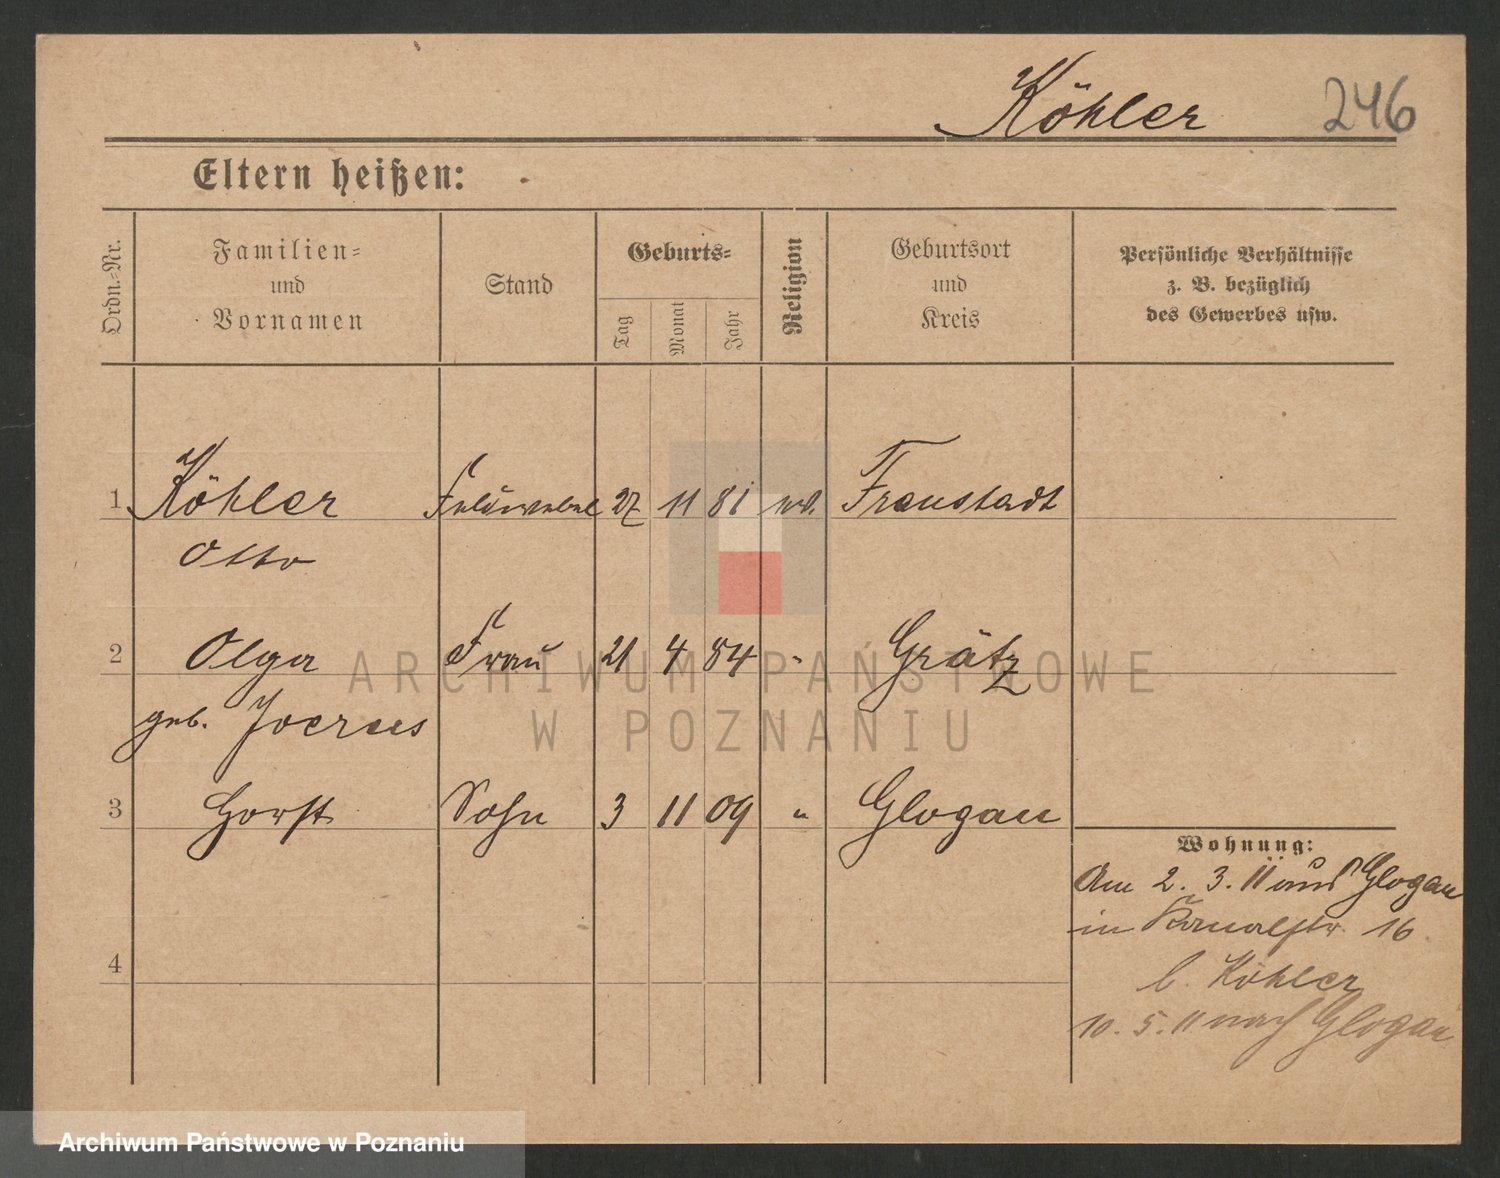 Köhler 246
Eltern heißen:
Ordn.-Nr.
Familien-
und
Vornamen
Stand
Geburts-
Tag
Monat
Jahr
Religion
Geburtsort
und
Kreis
Persönliche Verhältnisse
z. B. bezüglich
des Gewerbes usw.
1 Köhler Feldwebel 27 11 81 ev. Fraustadt
Otto
2 Olga Frau 21 4 84 " Grätz
geb.
3 Horst Sohn 3 11 09 " Glogau
Wohnung:
Am 2. 3. 11 aus Glogau
in Kanalstr. 16
b. Köhler
10. 5. 11 nach Glogau
4
ARCHIWUM PAŃSTWOWE
W POZNANIU
Archiwum Państwowe w Poznaniu